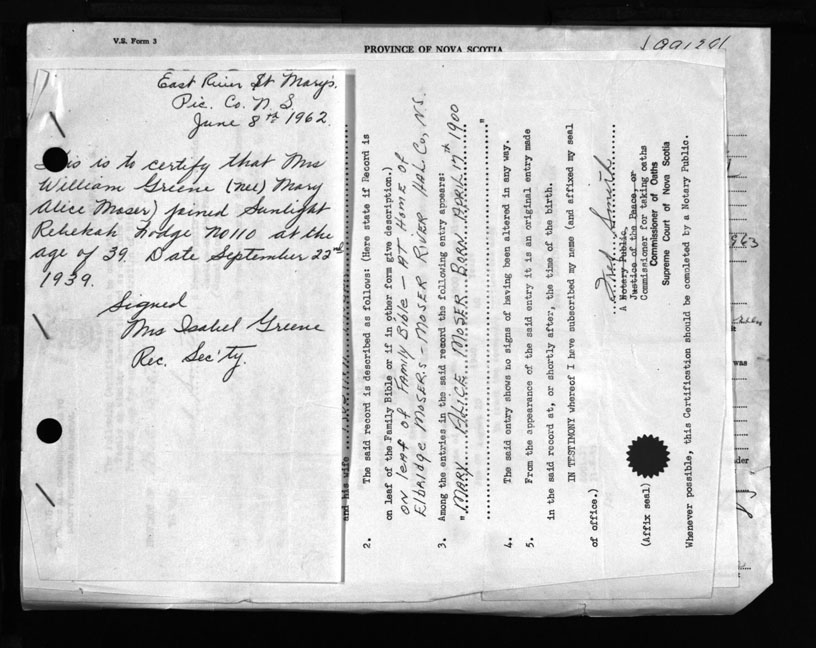 V.S. Form 3
PROVINCE OF NOVA SCOTIA
East River St Mary's.
Pic. Co. N. S.
June 8th 1962.
This is to certify that Mrs
William Greene (nee) Mary
Alice Moser) joined Sunlight
Rebekah Lodge No110 at the
age of 39. Date September 22nd
1939.
Signed
Mrs Isabel Greene
Rec. Sec'ty.
and his wife
2. The said record is described as follows: (Here state if Record is
on leaf of the Family Bible or if in other form give description.)
ON leaf of FAMILY Bible - AT HOME OF
Elbridge MOSER.s - MOSER RIVER HAL. Co, N.S.
3. Among the entries in the said record the following entry appears:
"MARY ALICE MOSER BORN APRIL 17th 1900
"
4. The said entry shows no signs of having been altered in any way.
5. From the appearance of the said entry it is an original entry made
in the said record at, or shortly after, the time of the birth.
IN TESTIMONY whereof I have subscribed my name (and affixed my seal
of office.)
Smith
A Notary Public,
Justice of the Peace, or
Commissioner for taking oaths
Commissioner of Oaths
Supreme Court of Nova Scotia
(Affix seal)
Whenever possible, this Certification should be completed by a Notary Public.
963
was
der